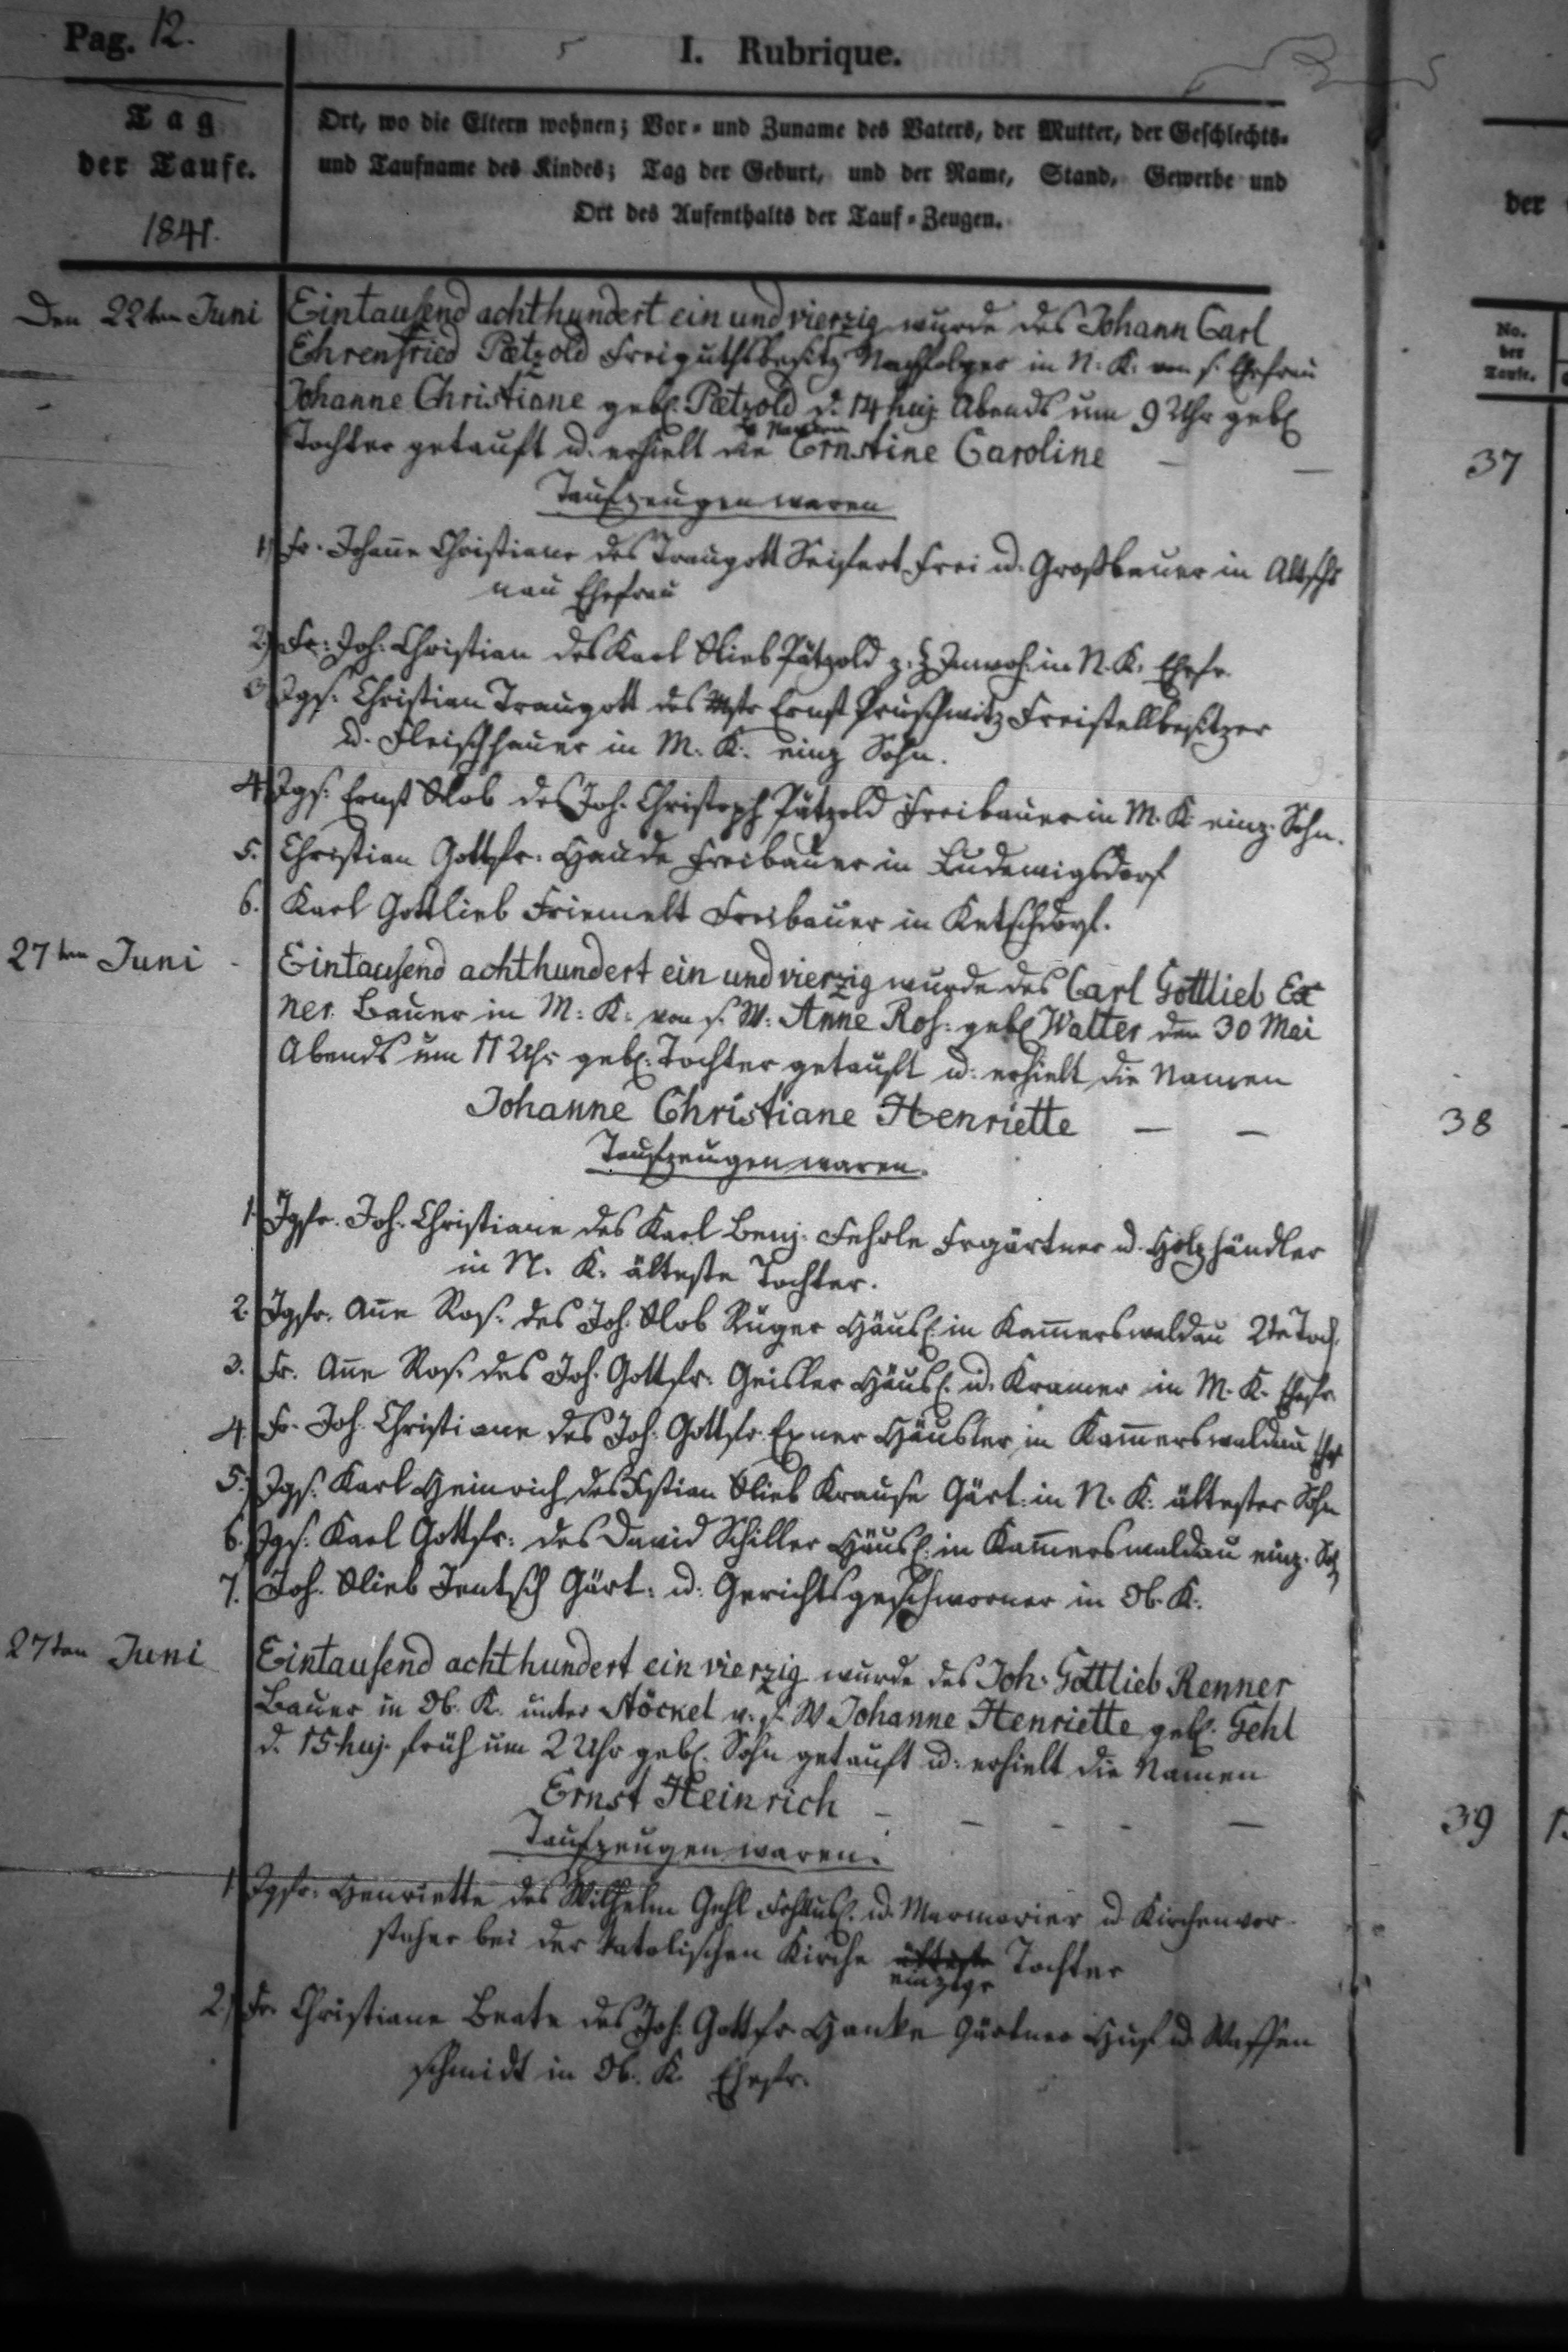 Pag. 12.
I. Rubrique.
Tag
der Taufe.
1841.
Ort, wo die Eltern wohnen; Vor- und Zuname des Vaters, der Mutter, der Geschlechts-
und Taufname des Kindes; Tag der Geburt, und der Name, Stand, Gewerbe und
Ort des Aufenthalts der Tauf-Zeugen.
Den 22ten Juni
Eintausend achthundert ein und vierzig wurde des Johann Carl
Ehrenfried Pätzold Freiguthsbesitz Nachfolger in N. K. von s. Ehefrau
Johanne Christiane geb. Pätzold d. 14 huj. Abends um 9 Uhr geb.
Tochter getauft u. erhielt die Namen Ernstine Caroline
Taufzeugen waren
1) Fr. Johanne Christiane des Traugott Seifert Frei u. Großbauer in Altschö
nau Ehefrau
2) Fr. Joh. Christian des Karl Glieb Pätzold z. Z. Inwoh. in N. K. Ehefr.
3 Jgs. Christian Traugott des Mstr Ernst Pruschwitz Freistellbesitzer
u. Fleischhauer in M. K. einz Sohn.
4 Jgs. Ernst Glob des Joh. Christoph Pätzold Freibauer in M. K. einz. Sohn.
5. Christian Gottfr. Haude Freibauer in Ludewigsdorf
6. Karl Gottlieb Friemelt Freibauer in Ketschdorf.
27ten Juni
Eintausend achthundert ein und vierzig wurde des Carl Gottlieb Ex
ner Bauer in M. K. von s. W. Anne Ros. geb. Walter den 30 Mai
Abends um 11 Uhr geb. Tochter getauft u. erhielt die Namen
Johanne Christiane Henriette
Taufzeugen waren.
1. Jgfr. Joh. Christiane des Karl Benj. Fehrle Frgärtner u. Holzhändler
in N. K. älteste Tochter.
2. Jgfr. Anne Ros. des Joh. Glob Rüger Häusl. in Kammerswaldau 2te Toch.
3. Fr. Anne Ros. des Joh. Gottfr. Geisler Häusl. u. Kramer in M. K. Ehefr.
4. Fr. Joh. Christiane des Joh. Gottfr. Exner Häusler in Kammerswaldau Ehe
5. Jgs. Karl Heinrich des Xstian Glieb Krause Gärt. in N. K. ältester Sohn
6. Jgs. Karl Gottfr. des David Schiller Häusl. in Kammerswaldau einz. Soh
7. Joh. Glieb Jentsch Gärt. u. Gerichtsgeschworner in Ob. K.
27ten Juni
Eintausend achthundert ein vierzig wurde des Joh. Gottlieb Renner
Bauer in Ob. K. unter Stöckel v. s. W Johanne Henriette geb. Gehl
d. 15 huj. früh um 2 Uhr geb. Sohn getauft u. erhielt die Namen
Ernst Heinrich
Taufzeugen waren.
1 Jgfr. Henriette des Wilhelm Gehl u. Marmorier u Kirchenvor-
steher bei der katolischen Kirche älteste einzige Tochter
2.) Fr. Christiane Beate des Joh. Gottfr Hanke Gärtner Huf u. Waffen
schmidt in Ob. K. Ehefr.
der
No.
der
Taufe.
37
38
39